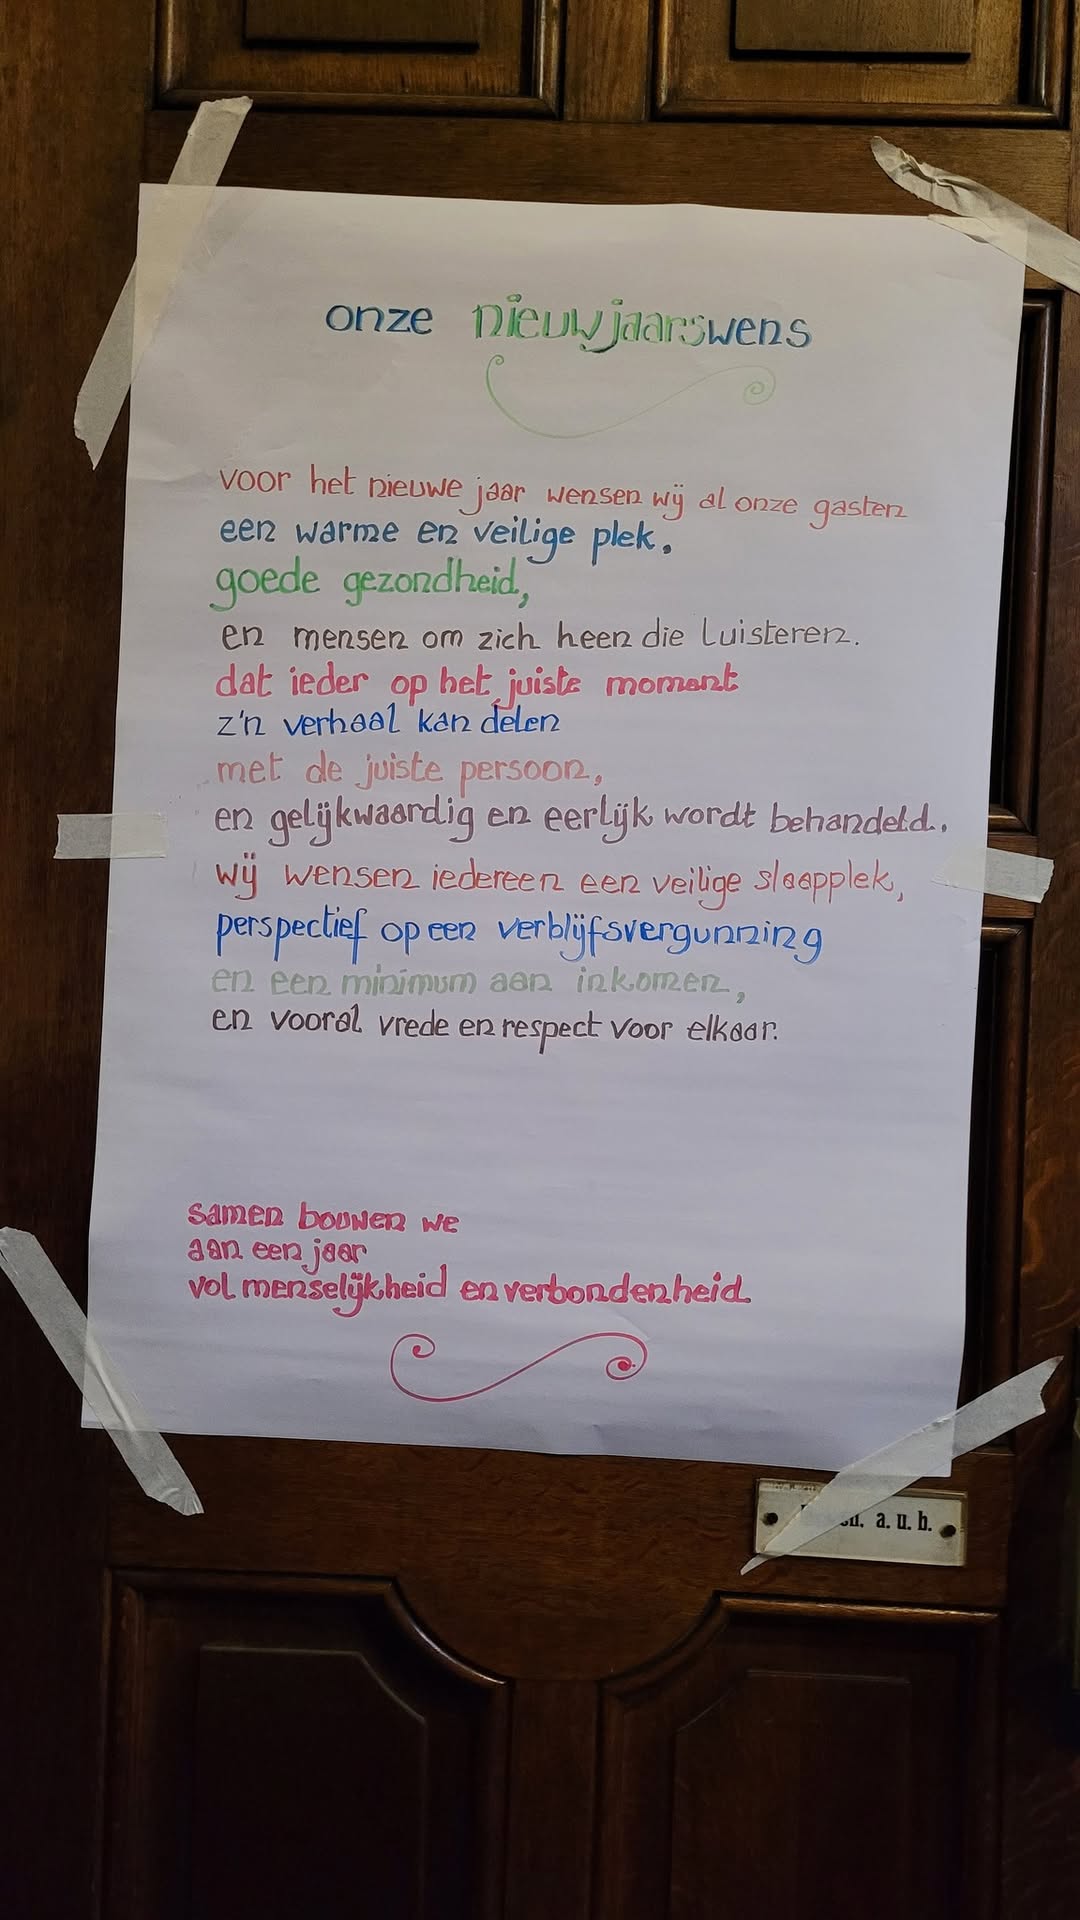 onze nieuwjaarswens
voor het nieuwe jaar wensen wij al onze gasten
een warme en veilige plek.
goede gezondheid,
en mensen om zich heen die luisteren.
dat ieder op het juiste moment
z'n verhaal kan delen
met de juiste persoon,
en gelijkwaardig en eerlijk wordt behandeld.
wij wensen iedereen een veilige slaapplek,
perspectief op een verblijfsvergunning
en een minimum aan inkomen,
en vooral vrede en respect voor elkaar.
samen bouwen we
aan een jaar
vol menselijkheid en verbondenheid
a.u.b.